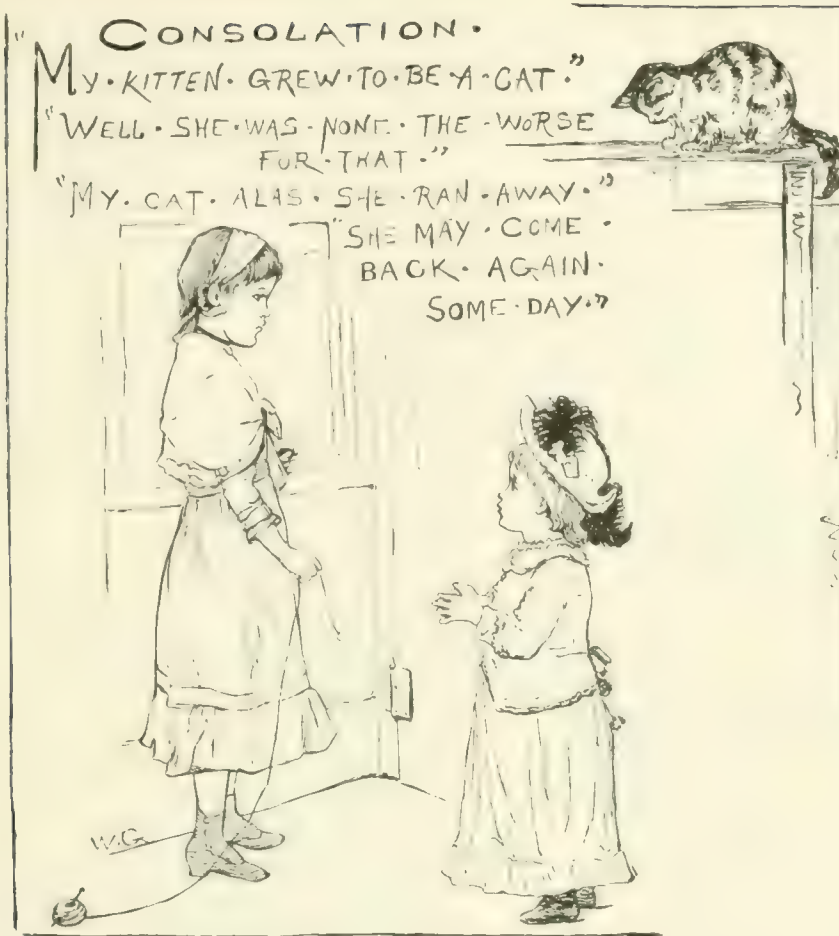 CONSOLATION.
"MY. KITTEN. GREW. TO. BE. A. CAT."
"WELL. SHE. WAS. NONE. THE. WORSE
FOR. THAT."
"MY. CAT. ALAS. SHE. RAN. AWAY."
"SHE MAY. COME.
BACK. AGAIN.
SOME. DAY."
W.G.